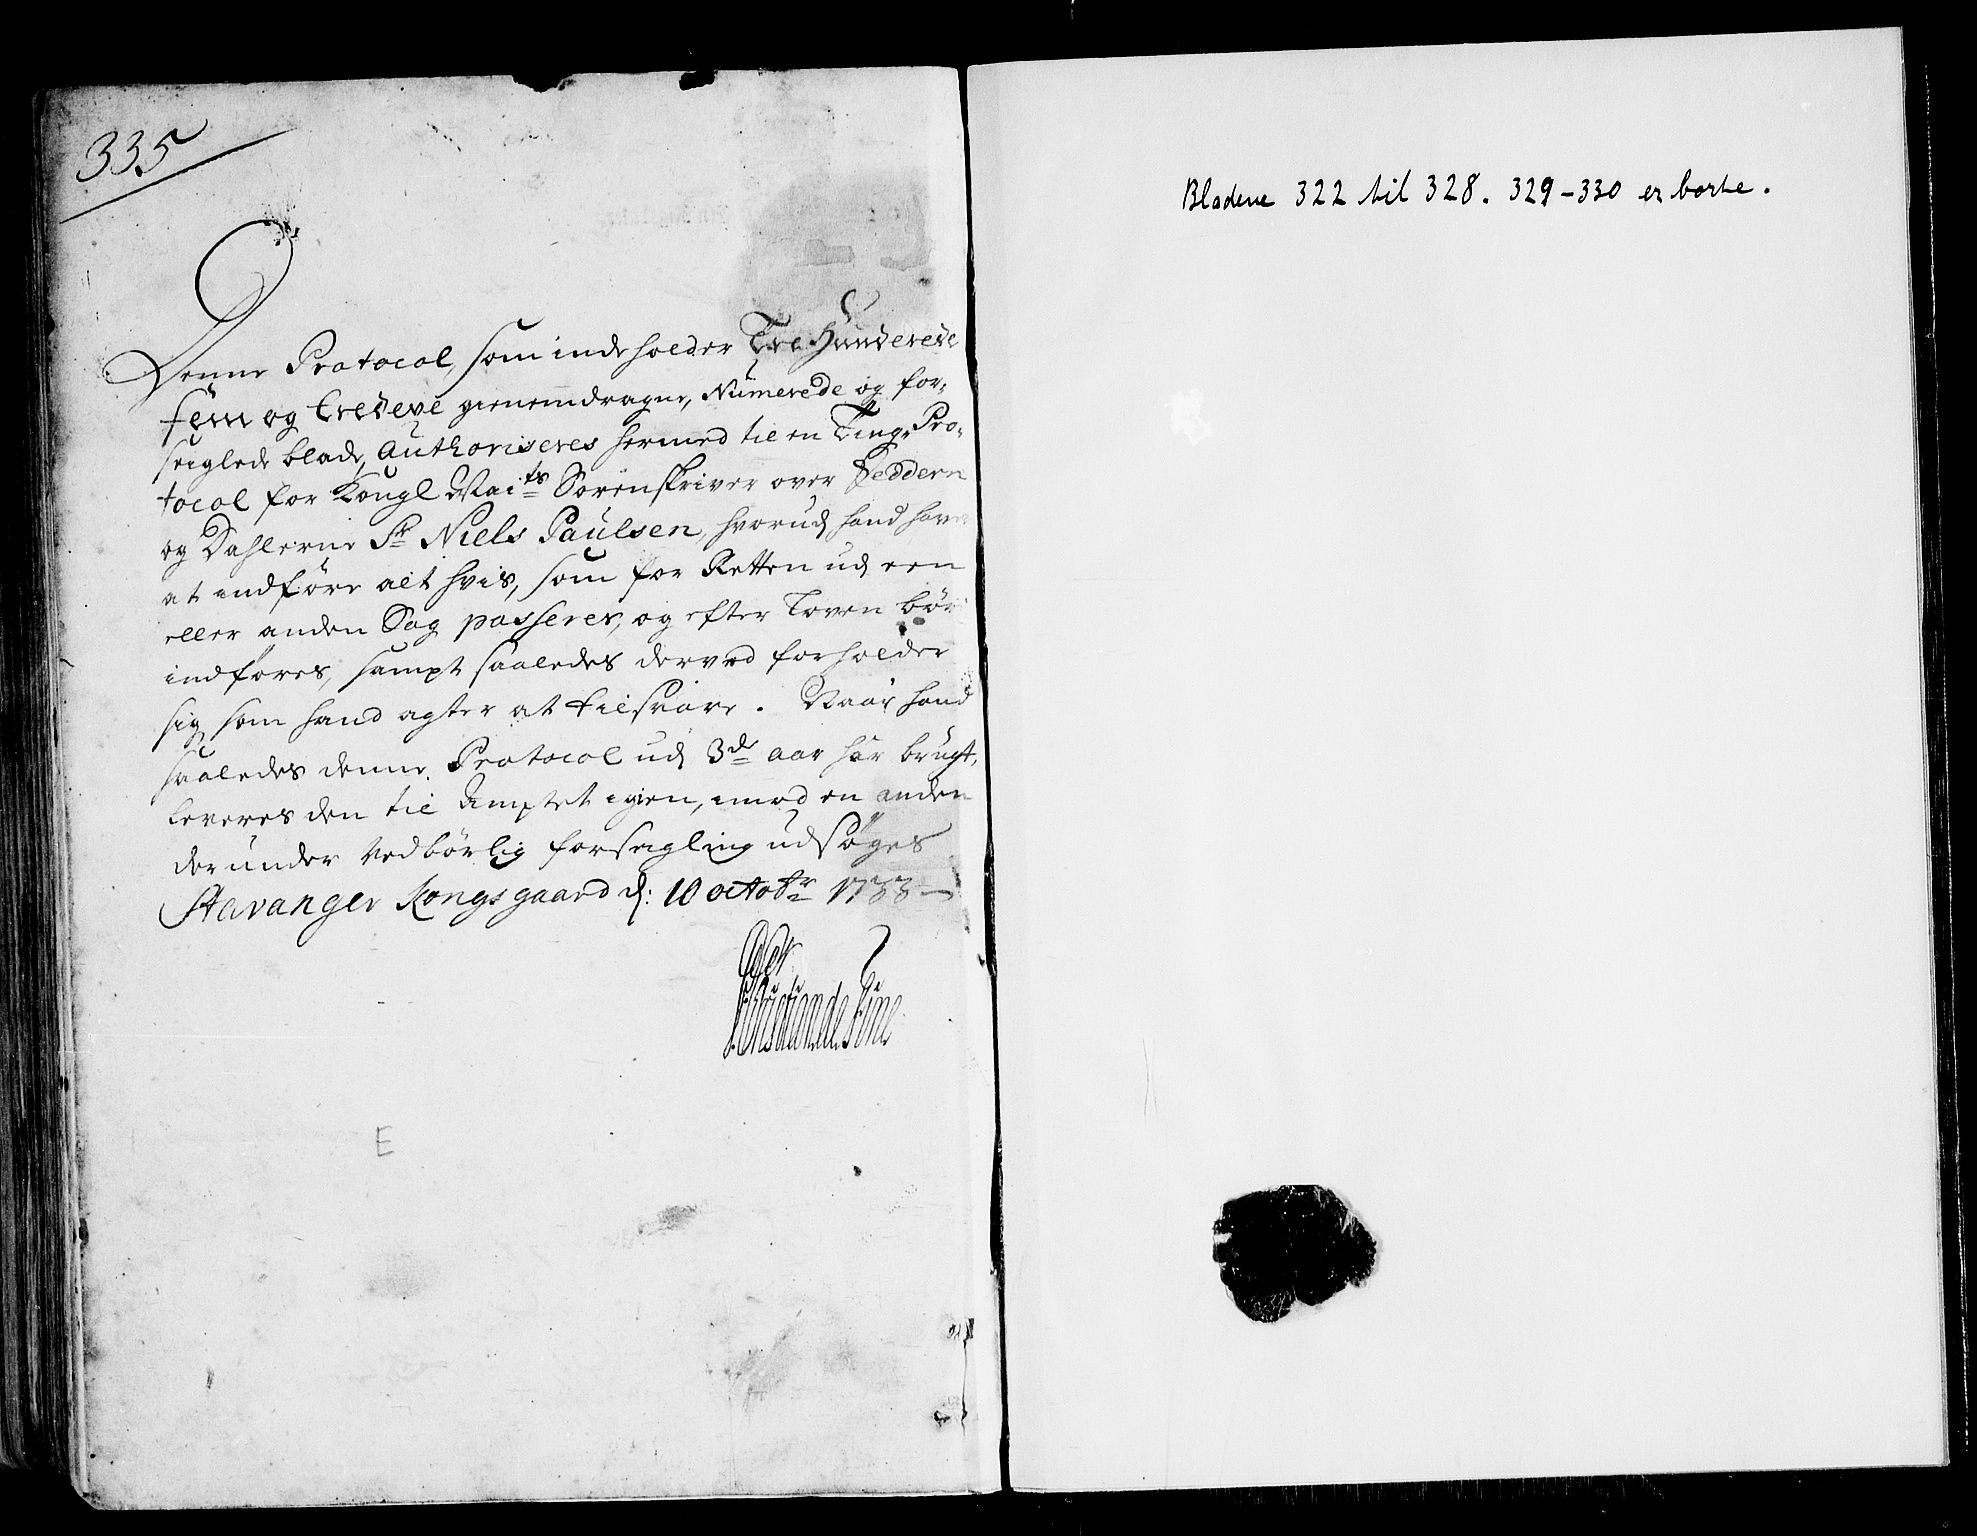 335
Denne Protocol, som indeholder Tre Hunderede
fem og tredeve gienemdragne, Numerede og for-
seiglede blade, Authoriseres hermed til en Ting-Pro-
tocol for Kongl Mai ts Sorenskriver over Jedderen
og Dahlerne Sr Niels Paulsen, hvorud hand haver
at indføre alt hvis, som for Retten ud een
eller anden Sag passerer, og efter Loven bør
indføres, sampt saaledes derved forholder
sig som hand agter at tilsvare. Naar hand
saaledes denne Protocol ud 3de aar har brugt,
leveres den til Amptet igien, imod en anden
derunder vedbørlig forseigling udsøges
Stavanger Kongsgaard d: 10 octobr 1733
de Fine
E
Bladene 322 til 328. 329-330 er borte.